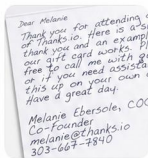 Dear Melanie
Thank you for attending a
of Thanks.io. Here is a s
thank you and an exampl
our gift card works. Pl
free to call me with q
or if you need assist
this up on your own
Have a great day.
Melanie Ebersole, COO
Co-Founder
melanie@thanks.io
303-667-7840